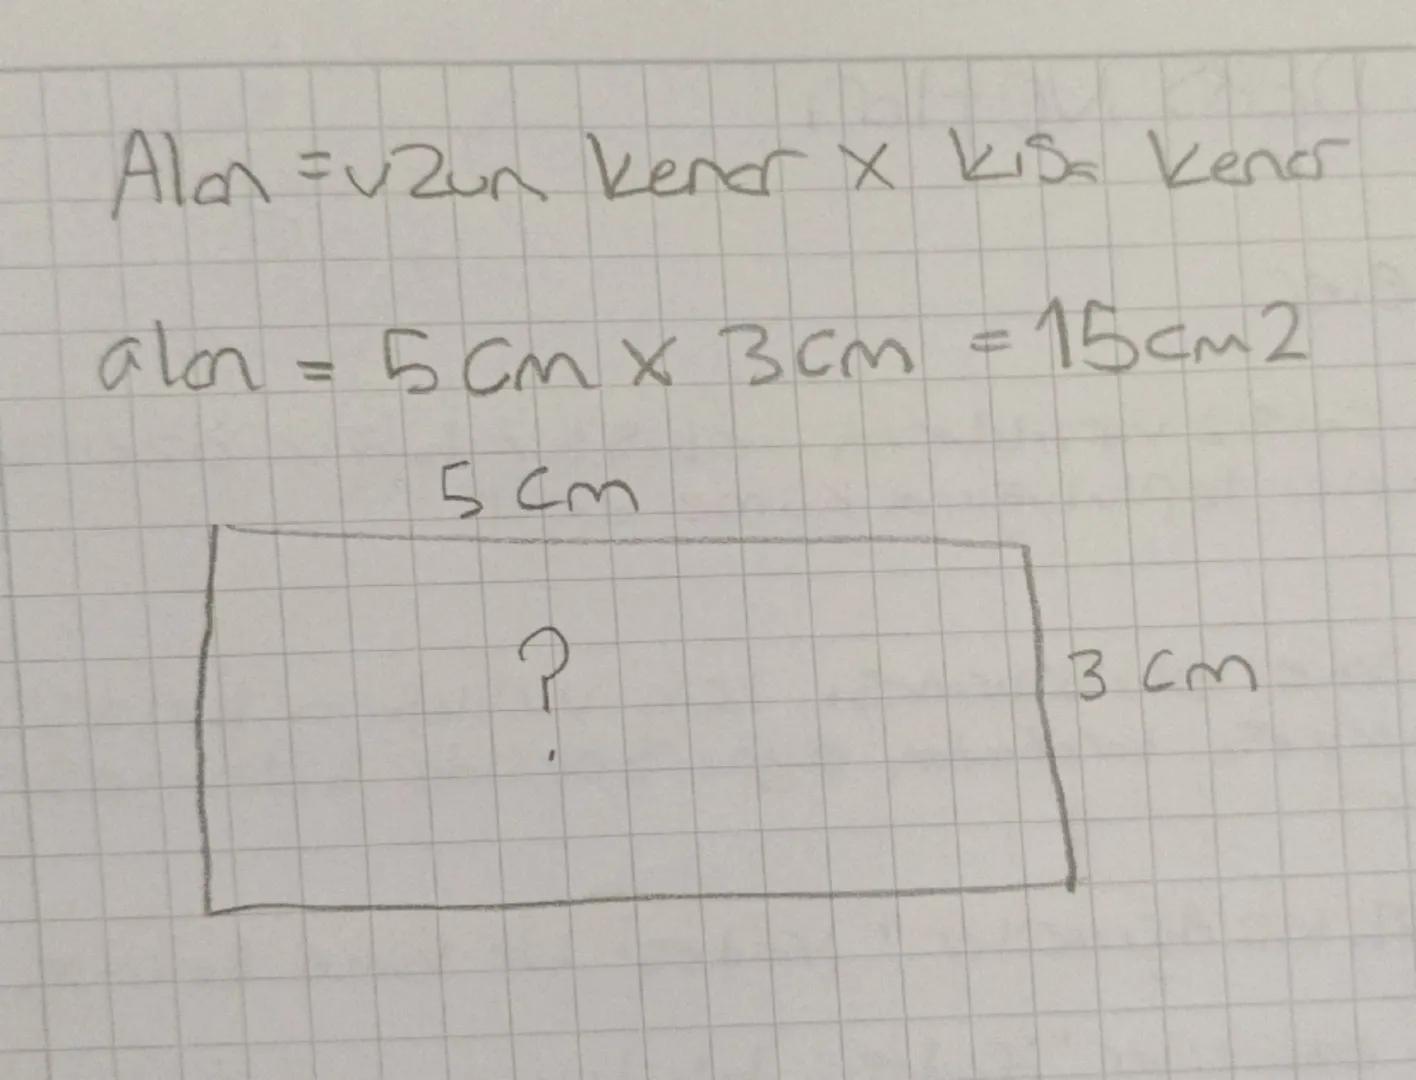 Alan = uzun kenar x kısa kenar
alan = 5 cm x 3 cm = 15 cm2
5 cm
?
3 cm